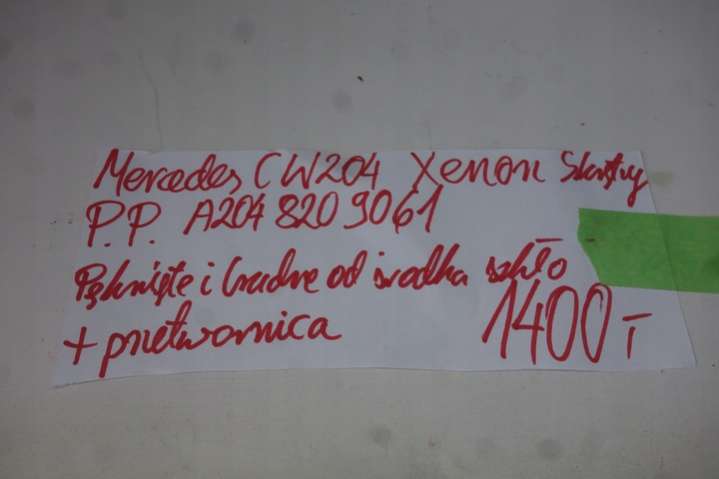 Mercedes CW204 Xenon Skrętny
P.P. A204 820 9061
Pęknięte i brudne od środka szkło
+ przetwornica 1400,-